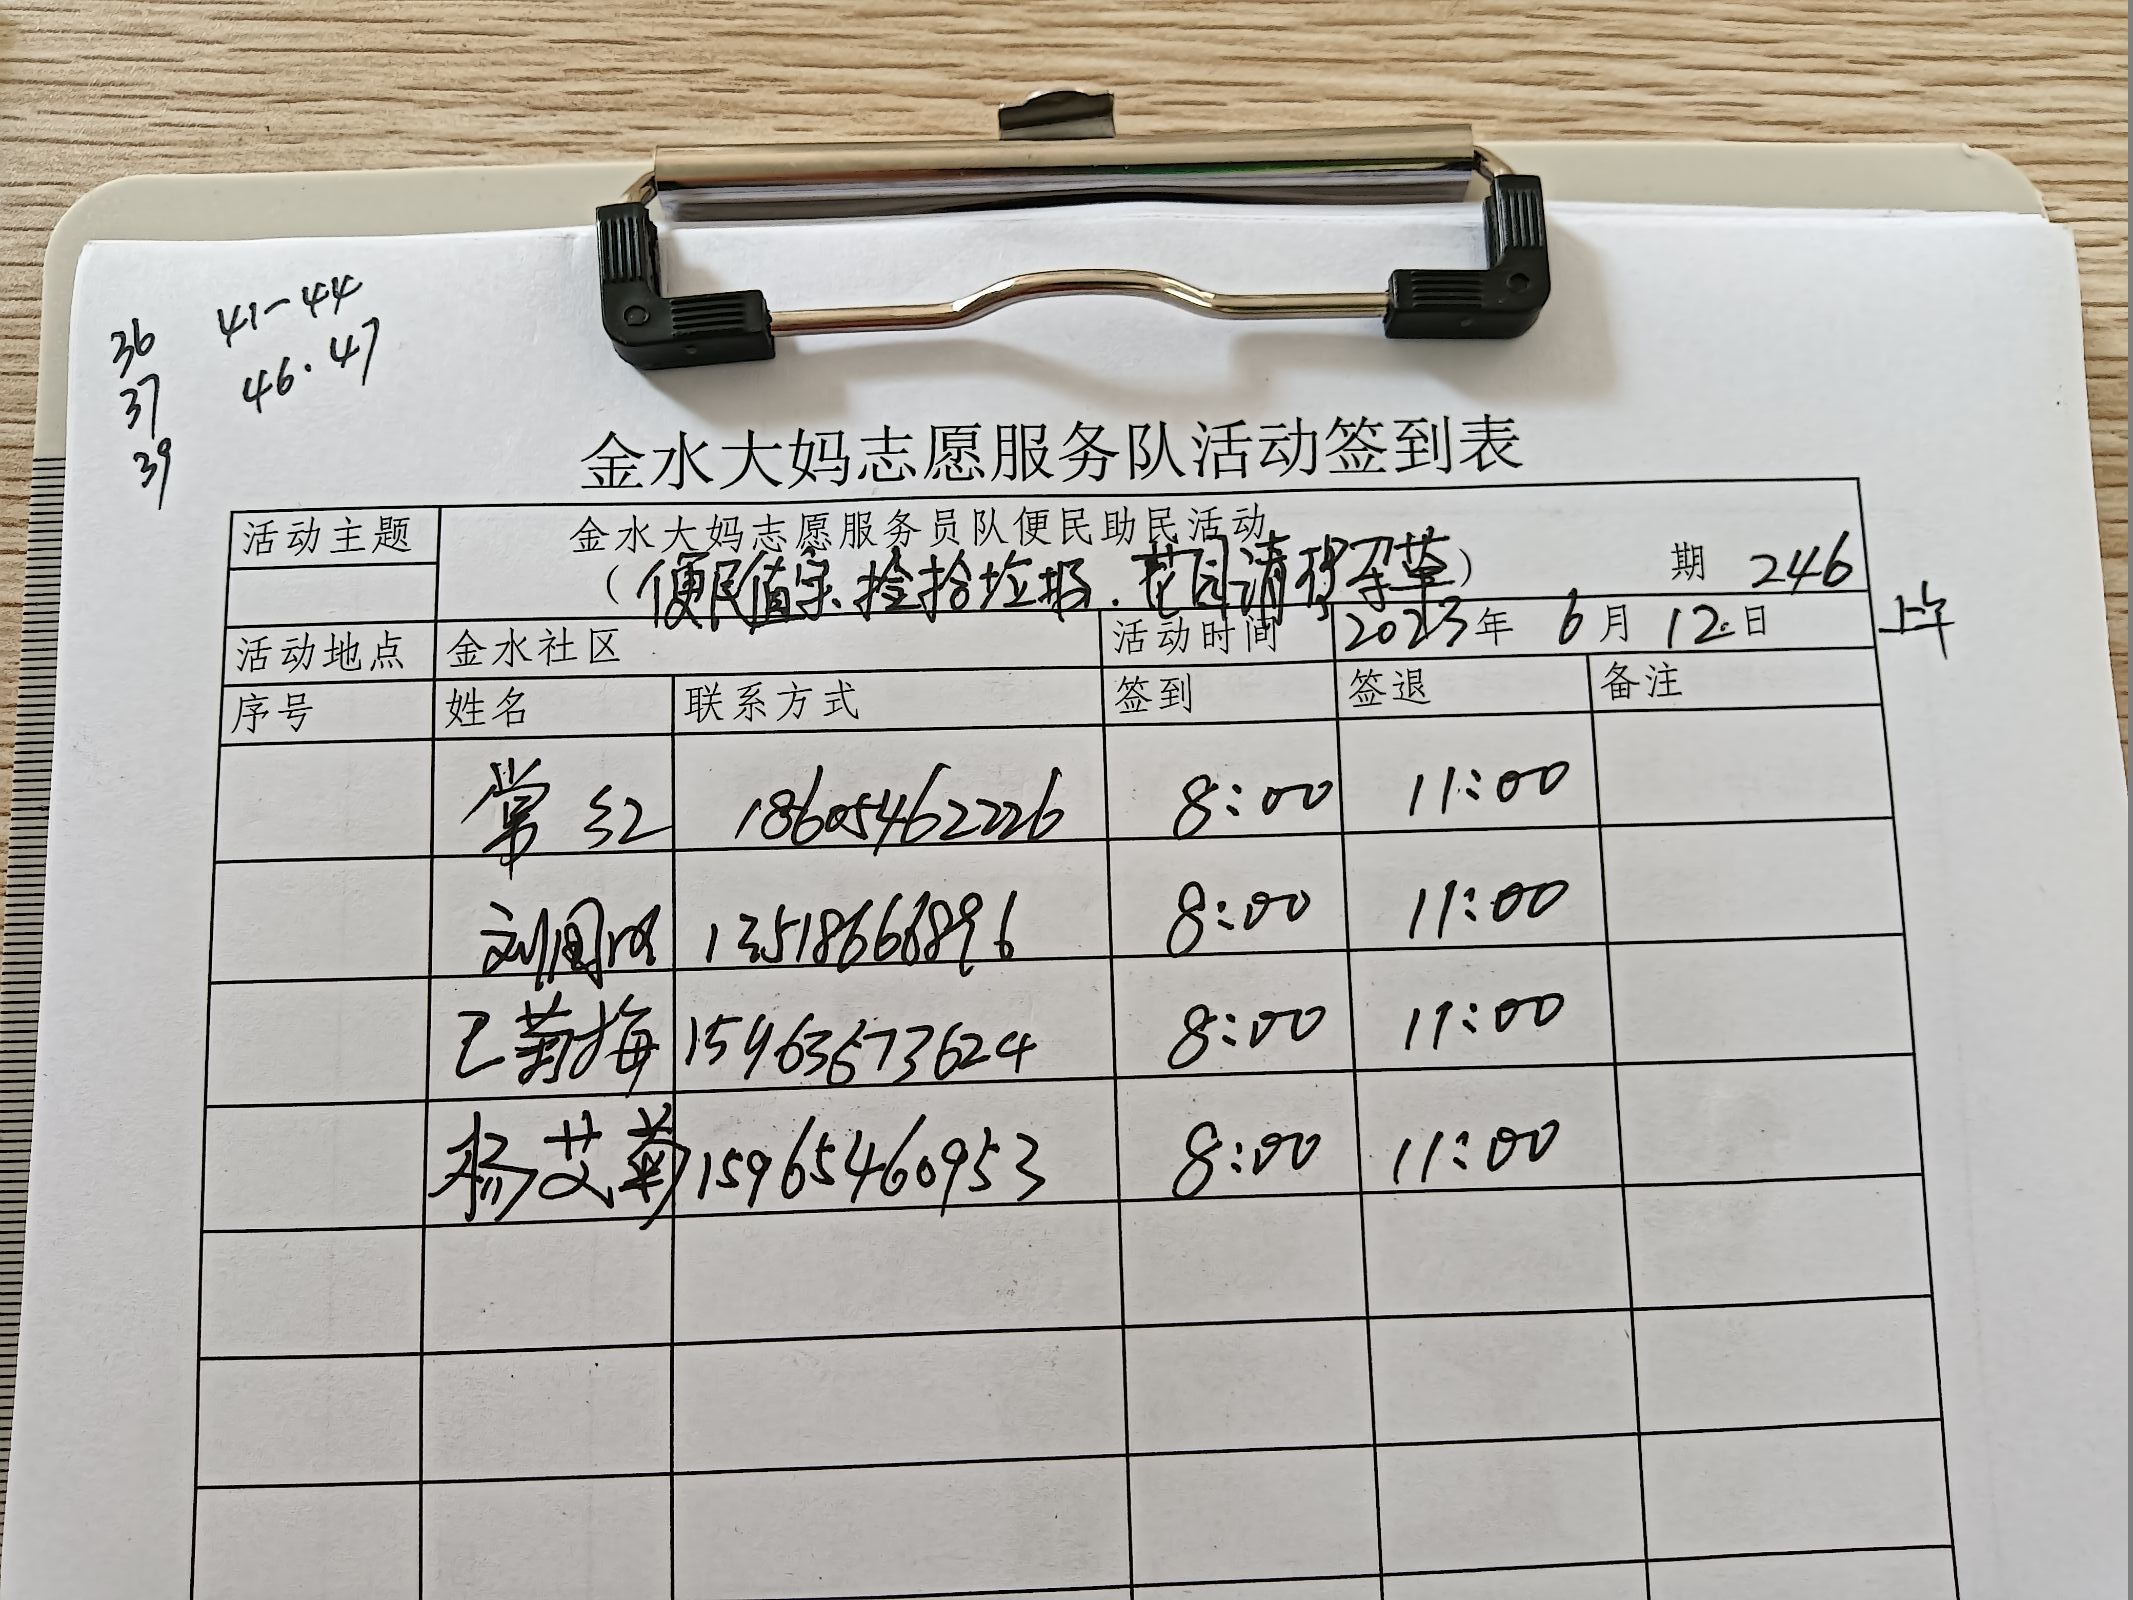 36
37
39
41-44
46.47
金水大妈志愿服务队活动签到表
活动主题 金水大妈志愿服务员队便民助民活动
（便民值宗、捡拾垃圾.花园清理杂草） 期 246
活动地点 金水社区 活动时间 2023年 6月 12.日 上午
序号 姓名 联系方式 签到 签退 备注
常红 18605462226 8:00 11:00
刘 13518666896 8:00 11:00
菊梅 8:00 11:00
杨艾菊 15965460953 8:00 11:00